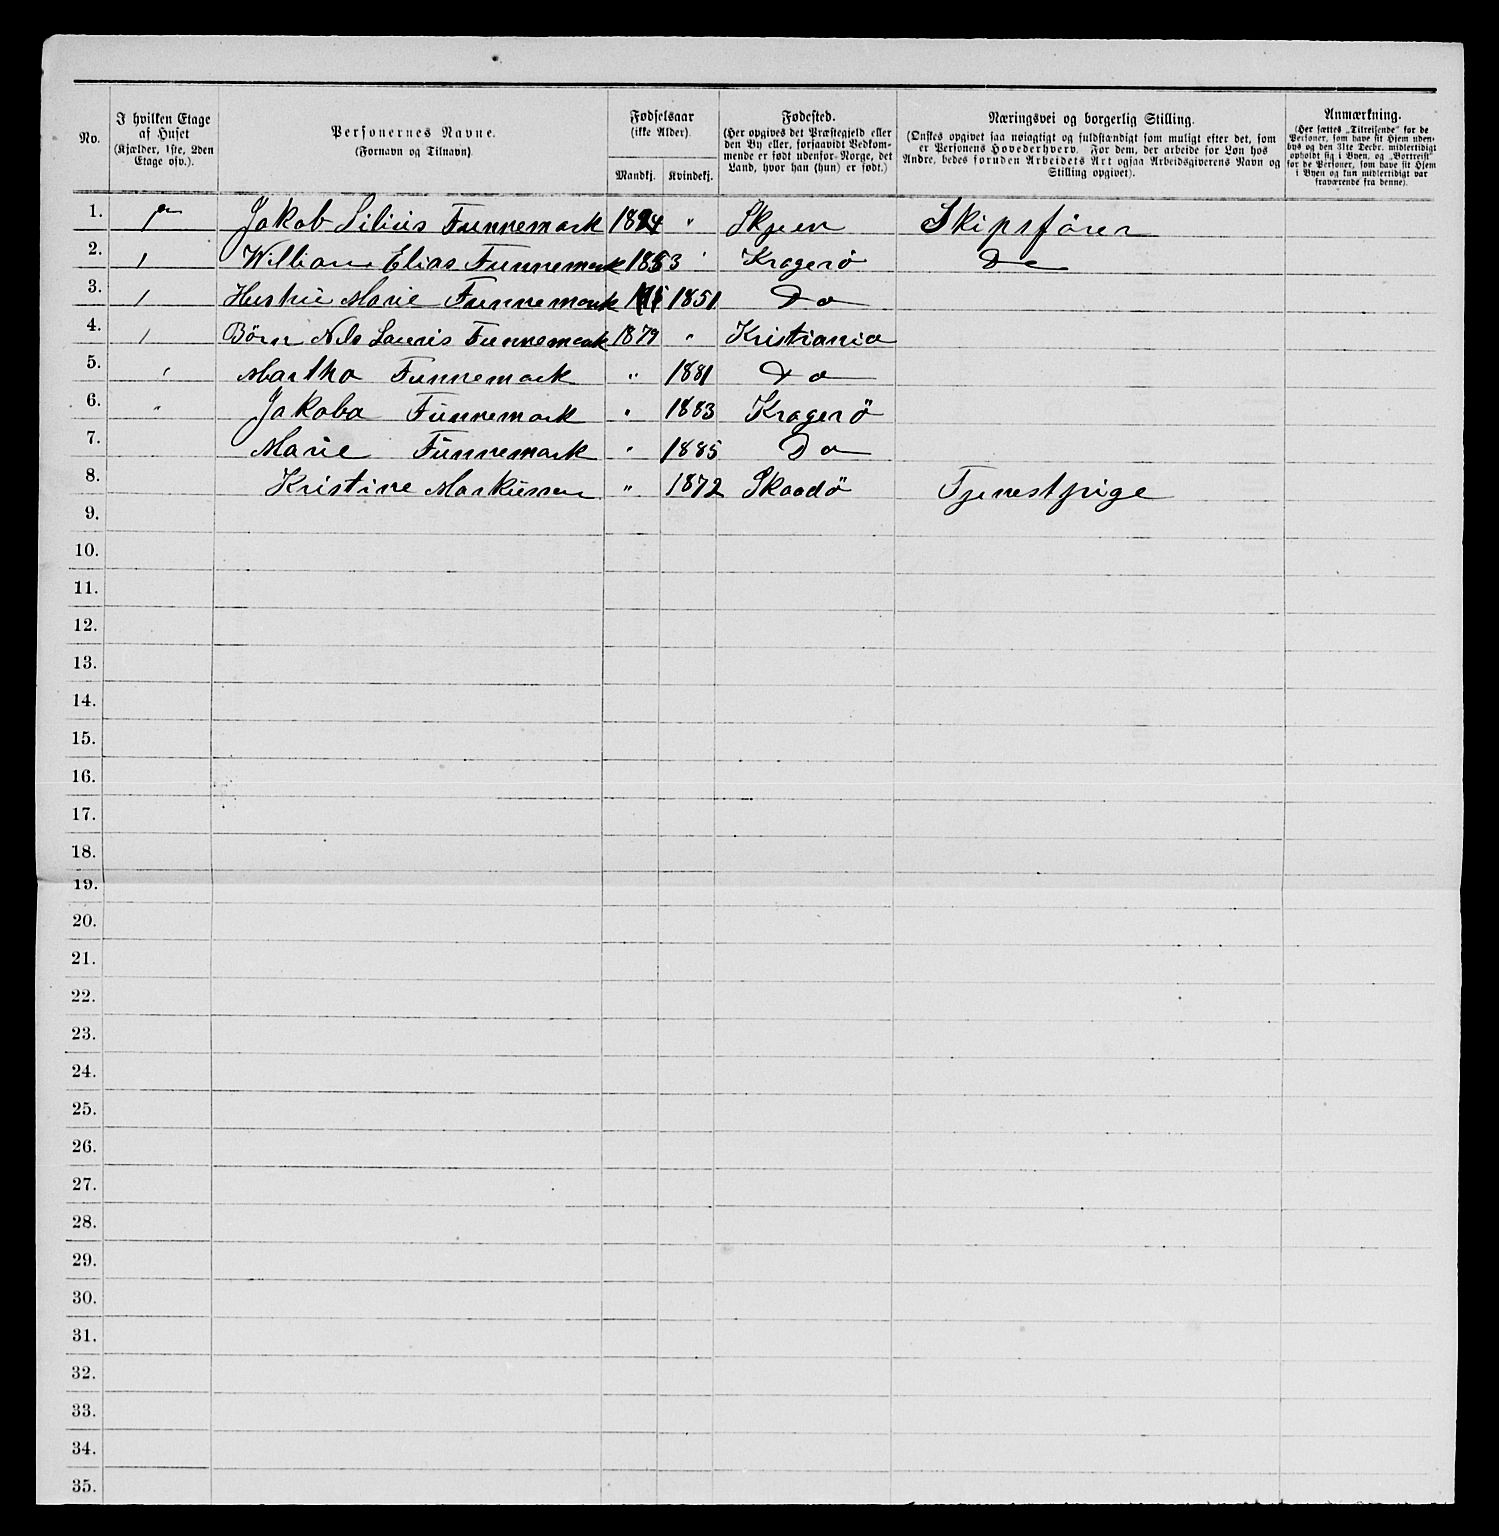 No.
I hvilken Etage
af Huset
(Kjælder, 1ste, 2den
Etage osv.).
Personernes Navne.
(Fornavn og Tilnavn).
Fødselsaar
(ikke Alder).
Mandkj. Kvindekj.
Fødested.
(Her opgives det Præstegjeld eller
den By eller, forsaavidt Vedkom-
mende er født udenfor Norge, det
Land, hvor han (hun) er født.)
Næringsvei og borgerlig Stilling.
(Ønskes opgivet saa nøiagtigt og fuldstændigt som muligt efter det, som
er Personens Hovederhverv. For dem, der arbeide for Løn hos
Andre, bedes foruden Arbeidets Art ogsaa Arbeidsgiverens Navn og
Stilling opgivet).
Anmærkning.
(Her sættes „Tilreisende" for de
Personer, som have sit Hjem uden-
bys og den 31te Decbr. midlertidigt
opholdt sig i Byen, og „Bortreist"
for de Personer, som have sit Hjem
i Byen og kun midlertidigt var
fraværende fra denne).
1. Jakob Lilius Funnemark 1824 " Skjen Skipsförer
2. 1 William Elias Funnemark 1853 " Kragerö Do
3. 1 Marie Funnemark 1851 Do
4. 1 Börn Nils Lauris Funnemark 1879 " Kristiania
5. " Martha Funnemark " 1881 Do
6. " Jakoba Funnemark " 1883 Kragerö
7. Marie Funnemark " 1885 Do
8. Kristine Markussen " 1872 Skaadö Tjenestpige
9.
10.
11.
12.
13.
14.
15.
16.
17.
18.
19.
20.
21.
22.
23.
24.
25.
26.
27.
28.
29.
30.
31.
32.
33.
34.
35.